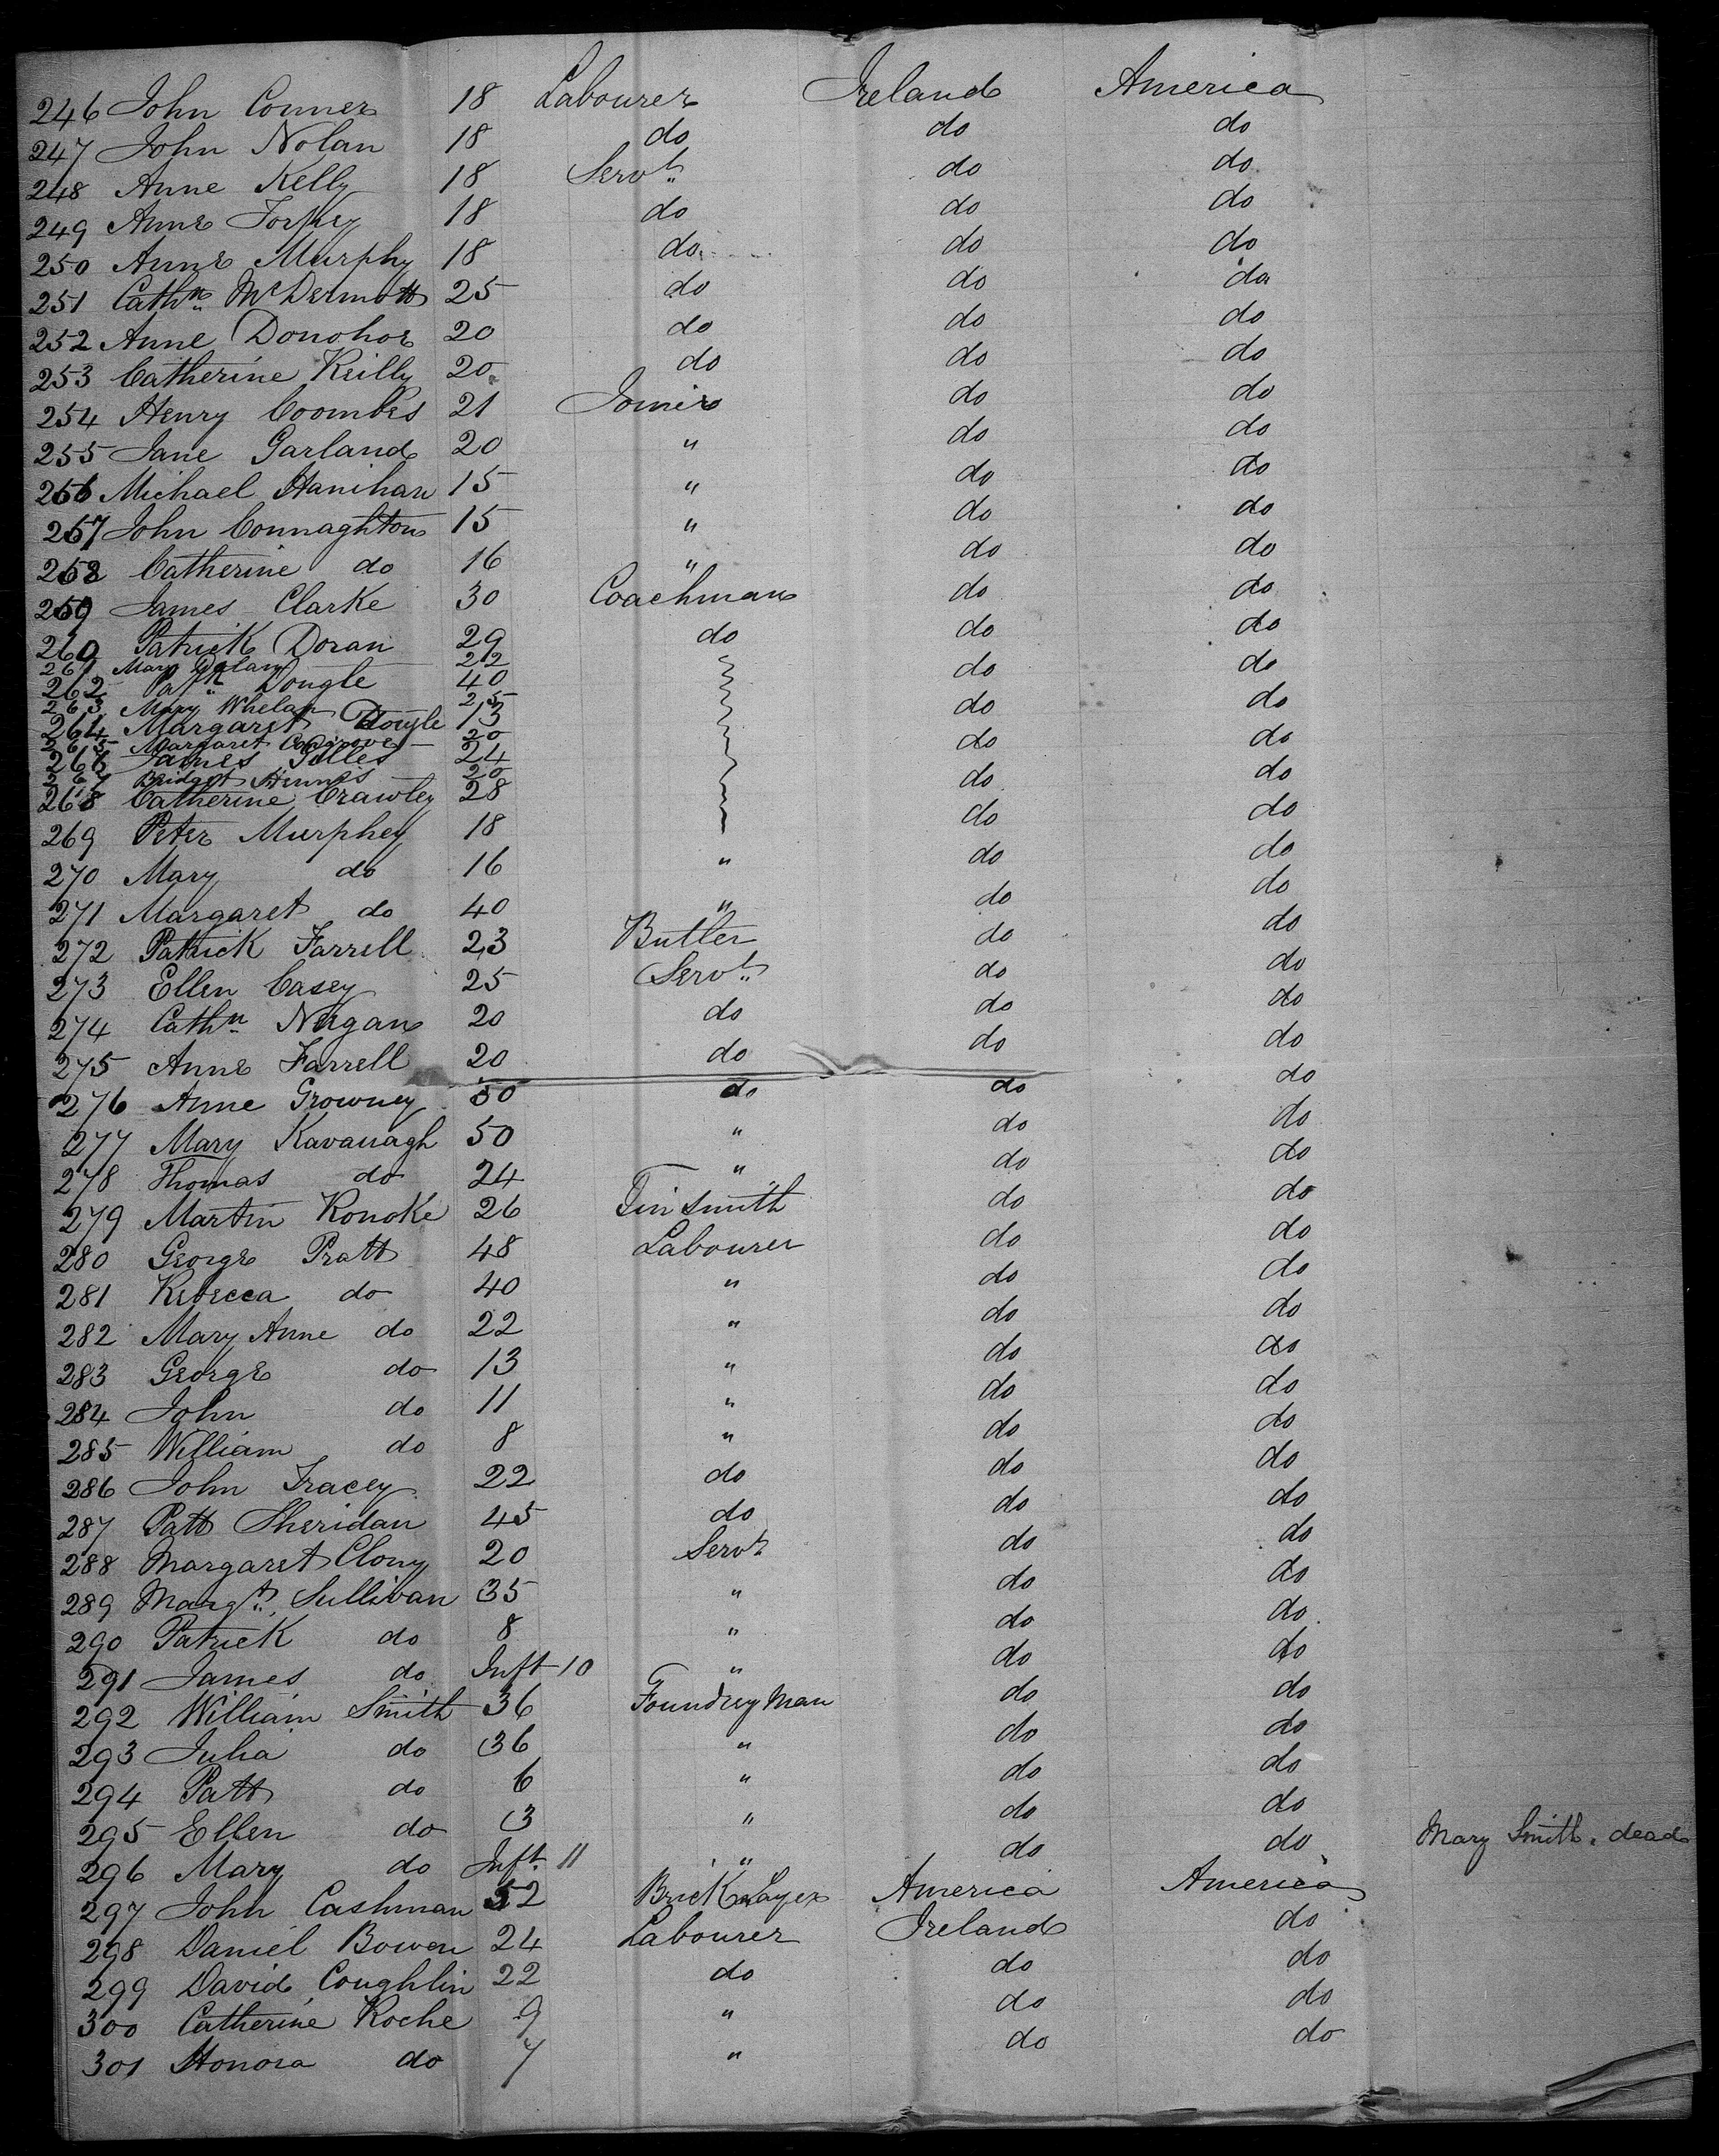 246 John Conner 18 Labourer Ireland America
247 John Nolan 18 do do do
248 Anne Kelly 18 Servt do do
249 Anne Torpey 18 do do do
250 Anne Murphy 18 do do do
251 Cathn McDermott 25 do do do
252 Anne Donohoe 20 do do do
253 Catherine Reilly 20 do do do
254 Henry Coombes 21 Joiner do do
255 Jane Garland 20 " do do
256 Michael Hanihan 15 " do do
257 John Connaghton 15 " do do
258 Catherine do 16 " do do
259 James Clarke 30 Coachman do do
260 Patrick Doran 29 do do do
261 Mary Dolan 22 do do
262 Patk Dongle 40
263 Mary Whelan 25 do do
264 Margaret Doyle 13
265 Margaret 20 do do
266 James Gilles 24
267 Bridget Hennis 20 do do
268 Catherine Crawley 28
269 Peter Murphey 18 do do
270 Mary do 16 " do do
271 Margaret do 40 " do do
272 Patrick Farrell 23 Butler do do
273 Ellen Casey 25 Servt do do
274 Cathn Negan 20 do do do
275 Anne Farrell 20 do do do
276 Anne Growney 50 do do do
277 Mary Kavanagh 50 " do do
278 Thomas do 24 " do do
279 Martin Ronoke 26 Tinsmith do do
280 George Pratt 48 Labourer do do
281 Rebecca do 40 " do do
282 Mary Anne do 22 " do do
283 George do 13 " do do
284 John do 11 " do do
285 William do 8 " do do
286 John Tracey 22 do do do
287 Patt Sheridan 45 do do do
288 Margaret Clony 20 Servt do do
289 Margt Sullivan 35 " do do
290 Patrick do 8 " do do
291 James do Inft 10 " do do
292 William Smith 36 Foundrey Man do do
293 Julia do 36 " do do
294 Patt do 6 " do do
295 Ellen do 3 " do do
296 Mary do Inft. 11 " do do Mary Smith. dead
297 John Cashman 52 Brick Layer America America
298 Daniel Bowen 24 Labourer Ireland do
299 David Coughlin 22 do do do
300 Catherine Roche 9 " do do
301 Honora do 7 " do do